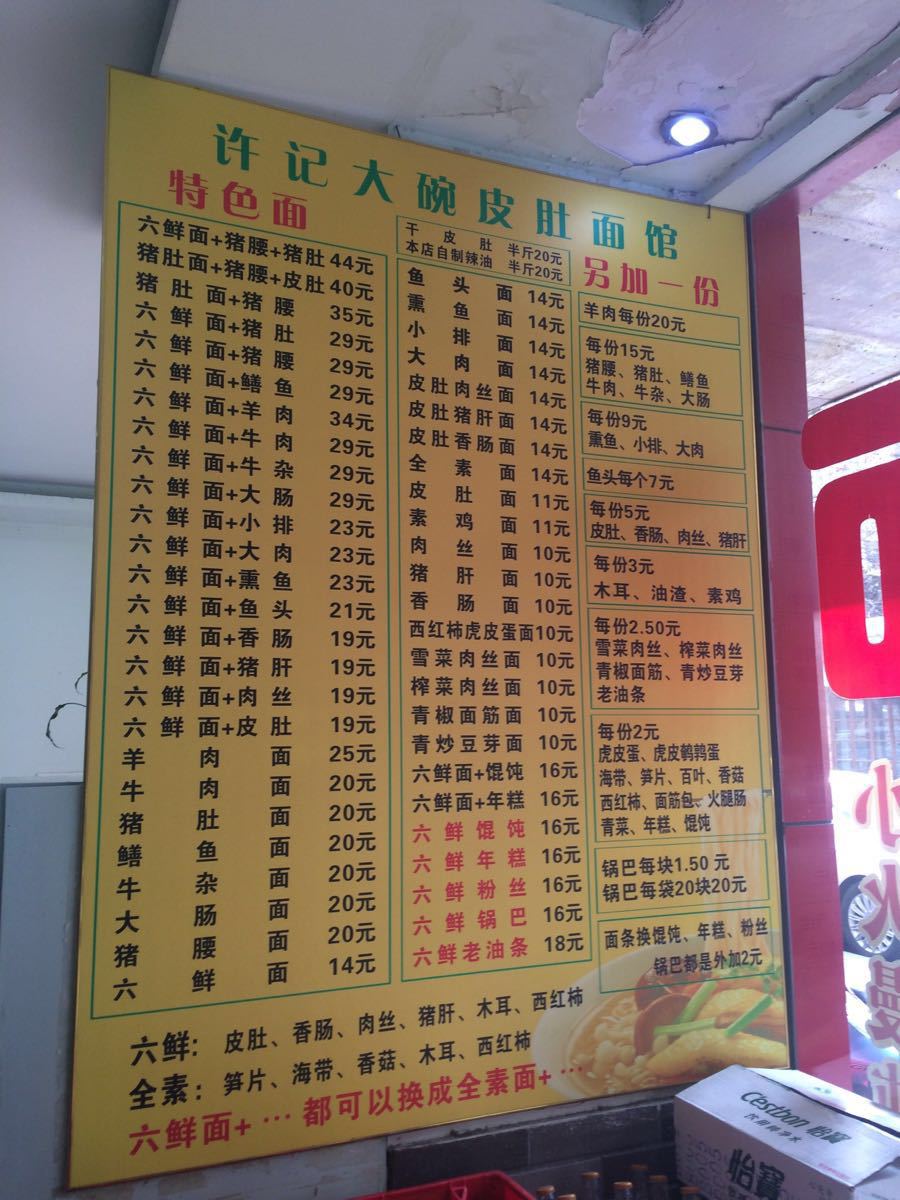 许记大碗皮肚面馆
特色面
六鲜面+猪腰+猪肚 44元
猪肚面+猪腰+皮肚 40元
猪肚面+猪腰 35元
六鲜面+猪肚 29元
六鲜面+猪腰 29元
六鲜面+鳝鱼 29元
六鲜面+羊肉 34元
六鲜面+牛肉 29元
六鲜面+牛杂 29元
六鲜面+大肠 29元
六鲜面+小排 23元
六鲜面+大肉 23元
六鲜面+熏鱼 23元
六鲜面+鱼头 21元
六鲜面+香肠 19元
六鲜面+猪肝 19元
六鲜面+肉丝 19元
六鲜面+皮肚 19元
羊肉面 25元
牛肉面 20元
猪肚面 20元
鳝鱼面 20元
牛杂面 20元
大肠面 20元
猪腰面 20元
六鲜面 14元
干皮肚 半斤20元
本店自制辣油 半斤20元
鱼头面 14元
熏鱼面 14元
小排面 14元
大肉面 14元
皮肚肉丝面 14元
皮肚猪肝面 14元
皮肚香肠面 14元
全素面 14元
皮肚面 11元
素鸡面 11元
肉丝面 10元
猪肝面 10元
香肠面 10元
西红柿虎皮蛋面10元
雪菜肉丝面 10元
榨菜肉丝面 10元
青椒面筋面 10元
青炒豆芽面 10元
六鲜面+馄饨 16元
六鲜面+年糕 16元
六鲜馄饨 16元
六鲜年糕 16元
六鲜粉丝 16元
六鲜锅巴 16元
六鲜老油条 18元
另加一份
羊肉每份20元
每份15元
猪腰、猪肚、鳝鱼
牛肉、牛杂、大肠
每份9元
熏鱼、小排、大肉
鱼头每个7元
每份5元
皮肚、香肠、肉丝、猪肝
每份3元
木耳、油渣、素鸡
每份2.50元
雪菜肉丝、榨菜肉丝
青椒面筋、青炒豆芽
老油条
每份2元
虎皮蛋、虎皮鹌鹑蛋
海带、笋片、百叶、香菇
西红柿、面筋包、火腿肠
青菜、年糕、馄饨
锅巴每块1.50元
锅巴每袋20块20元
面条换馄饨、年糕、粉丝
锅巴都是外加2元
六鲜：皮肚、香肠、肉丝、猪肝、木耳、西红柿
全素：笋片、海带、香菇、木耳、西红柿
六鲜面+…都可以换成全素面+…
C'estbon 怡宝
饮用纯净水
怡宝